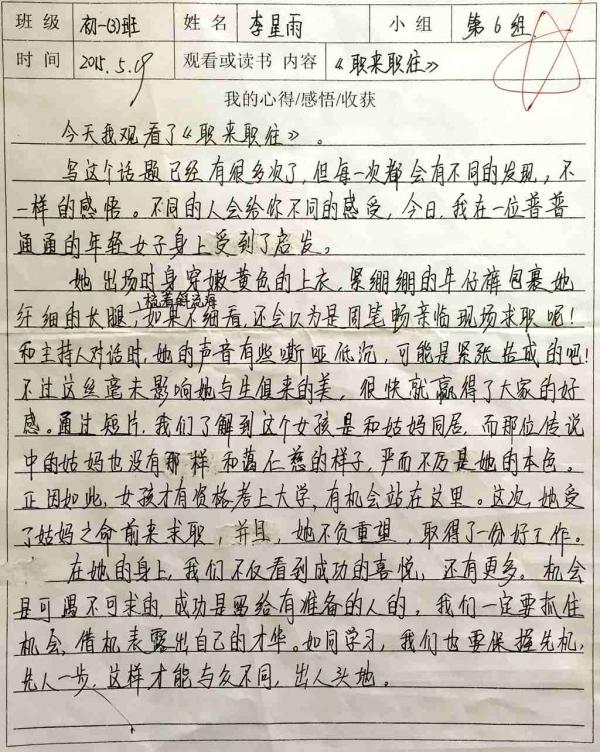 班 级 初一(3)班 姓 名 李星雨 小 组 第6组
时 间 2015.5.19 观看或读书 内容 《职来职往》
我的心得/感悟/收获
今天我观看了《职来职往》。
写这个话题已经有很多次了,但每一次都会有不同的发现,不
一样的感悟。不同的人会给你不同的感受,今日,我在一位普普
通通的年轻女子身上受到了启发。
她出场时身穿嫩黄色的上衣,紧绷绷的牛仔裤包裹她
梳着斜流海
纤细的大腿,如果不细看,还会以为是周笔畅亲临现场求职呢!
和主持人对话时,她的声音有些嘶哑低沉,可能是紧张造成的吧!
不过这丝毫未影响她与生俱来的美,很快就赢得了大家的好
感。通过短片,我们了解到这个女孩是和姑妈同居,而那位传说
中的姑妈也没有那样和蔼仁慈的样子,严而不厉是她的本色。
正因如此,女孩才有资格考上大学,有机会站在这里。这次,她受
了姑妈之命前来求职,并且,她不负重望,取得了一份好工作。
在她的身上,我们不仅看到成功的喜悦,还有更多。机会
是可遇不可求的,成功是留给有准备的人的。我们一定要抓住
机会,借机表露出自己的才华。如同学习,我们也要保握先机,
先人一步,这样才能与众不同,出人头地。